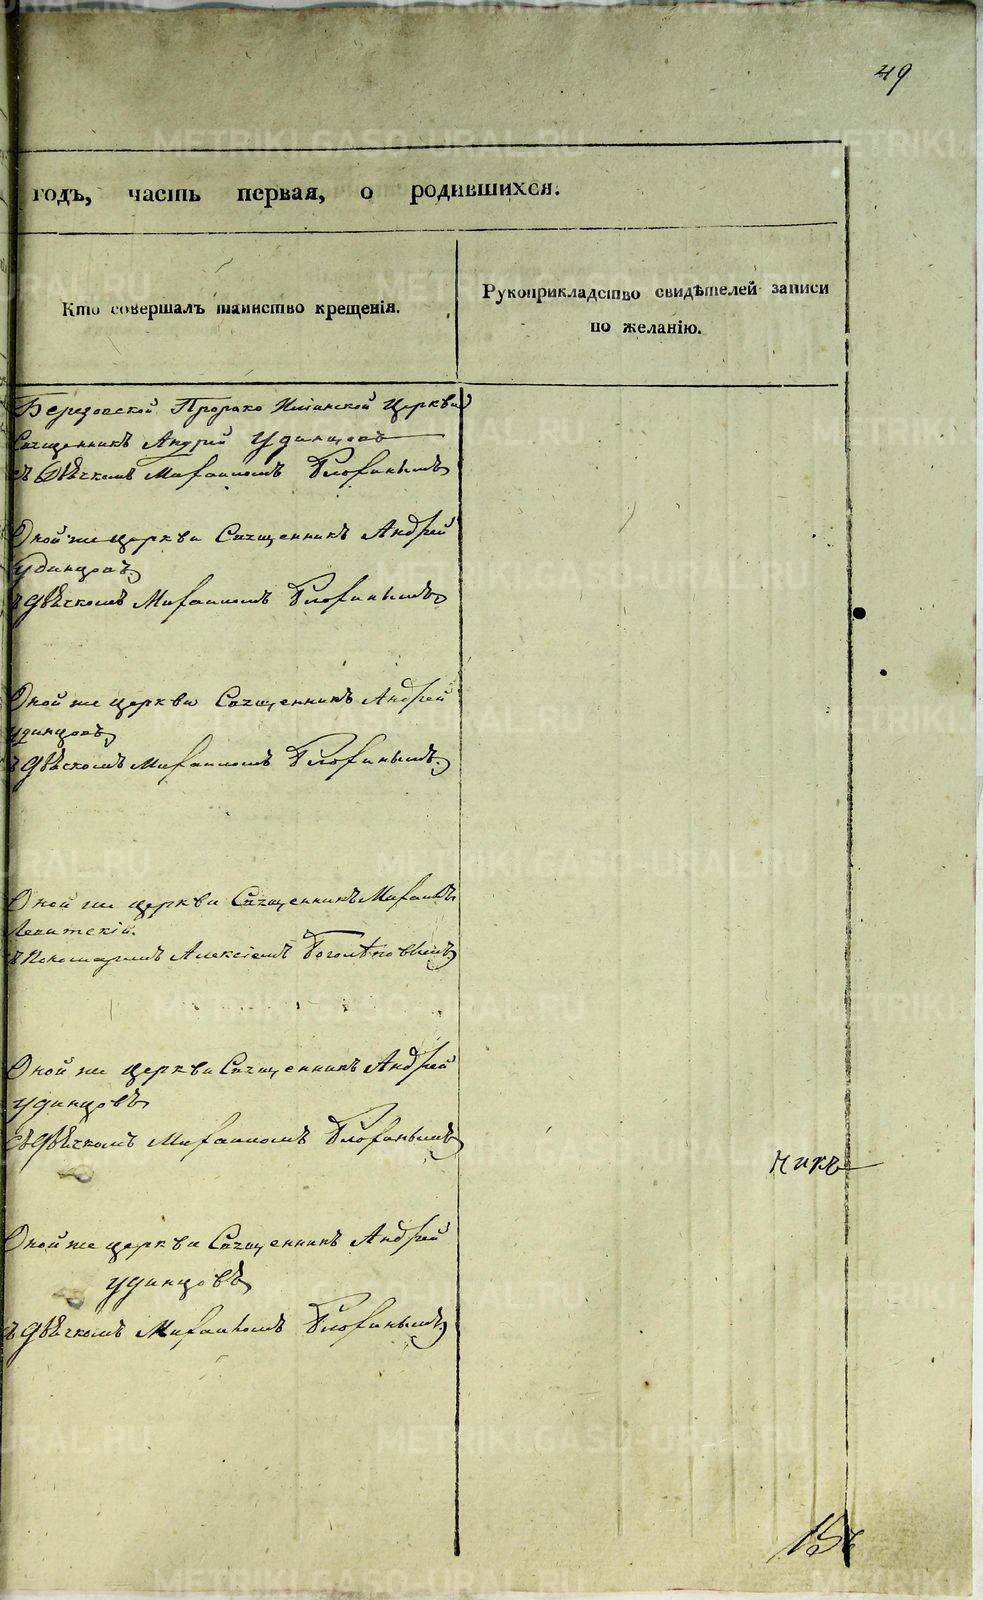 49
годъ, часть первая, о родившихся.
Кто совершалъ таинство крещенія.
Рукоприкладство свидѣтелей записи
по желанію.
Березовской Пророко Илiинской Церкви
Священникъ Андрей Удинцовъ
съ Дьячкомъ Михаиломъ
Оной же церкви Священникъ Андрей
Удинцовъ
съ Дьячкомъ Михаиломъ
Оной же церкви Священникъ Андрей
Удинцовъ
съ Дьячкомъ Михаиломъ
Оной же церкви Священникъ Михаилъ
Левитскій.
съ Пономаремъ Алексiемъ Боголѣповымъ
Оной же церкви Священникъ Андрей
Удинцовъ
съ Дьячкомъ Михаиломъ
Оной же церкви Священникъ Андрей
Удинцовъ
съ Дьячкомъ Михаиломъ
METRIKI.GASO-URAL.RU